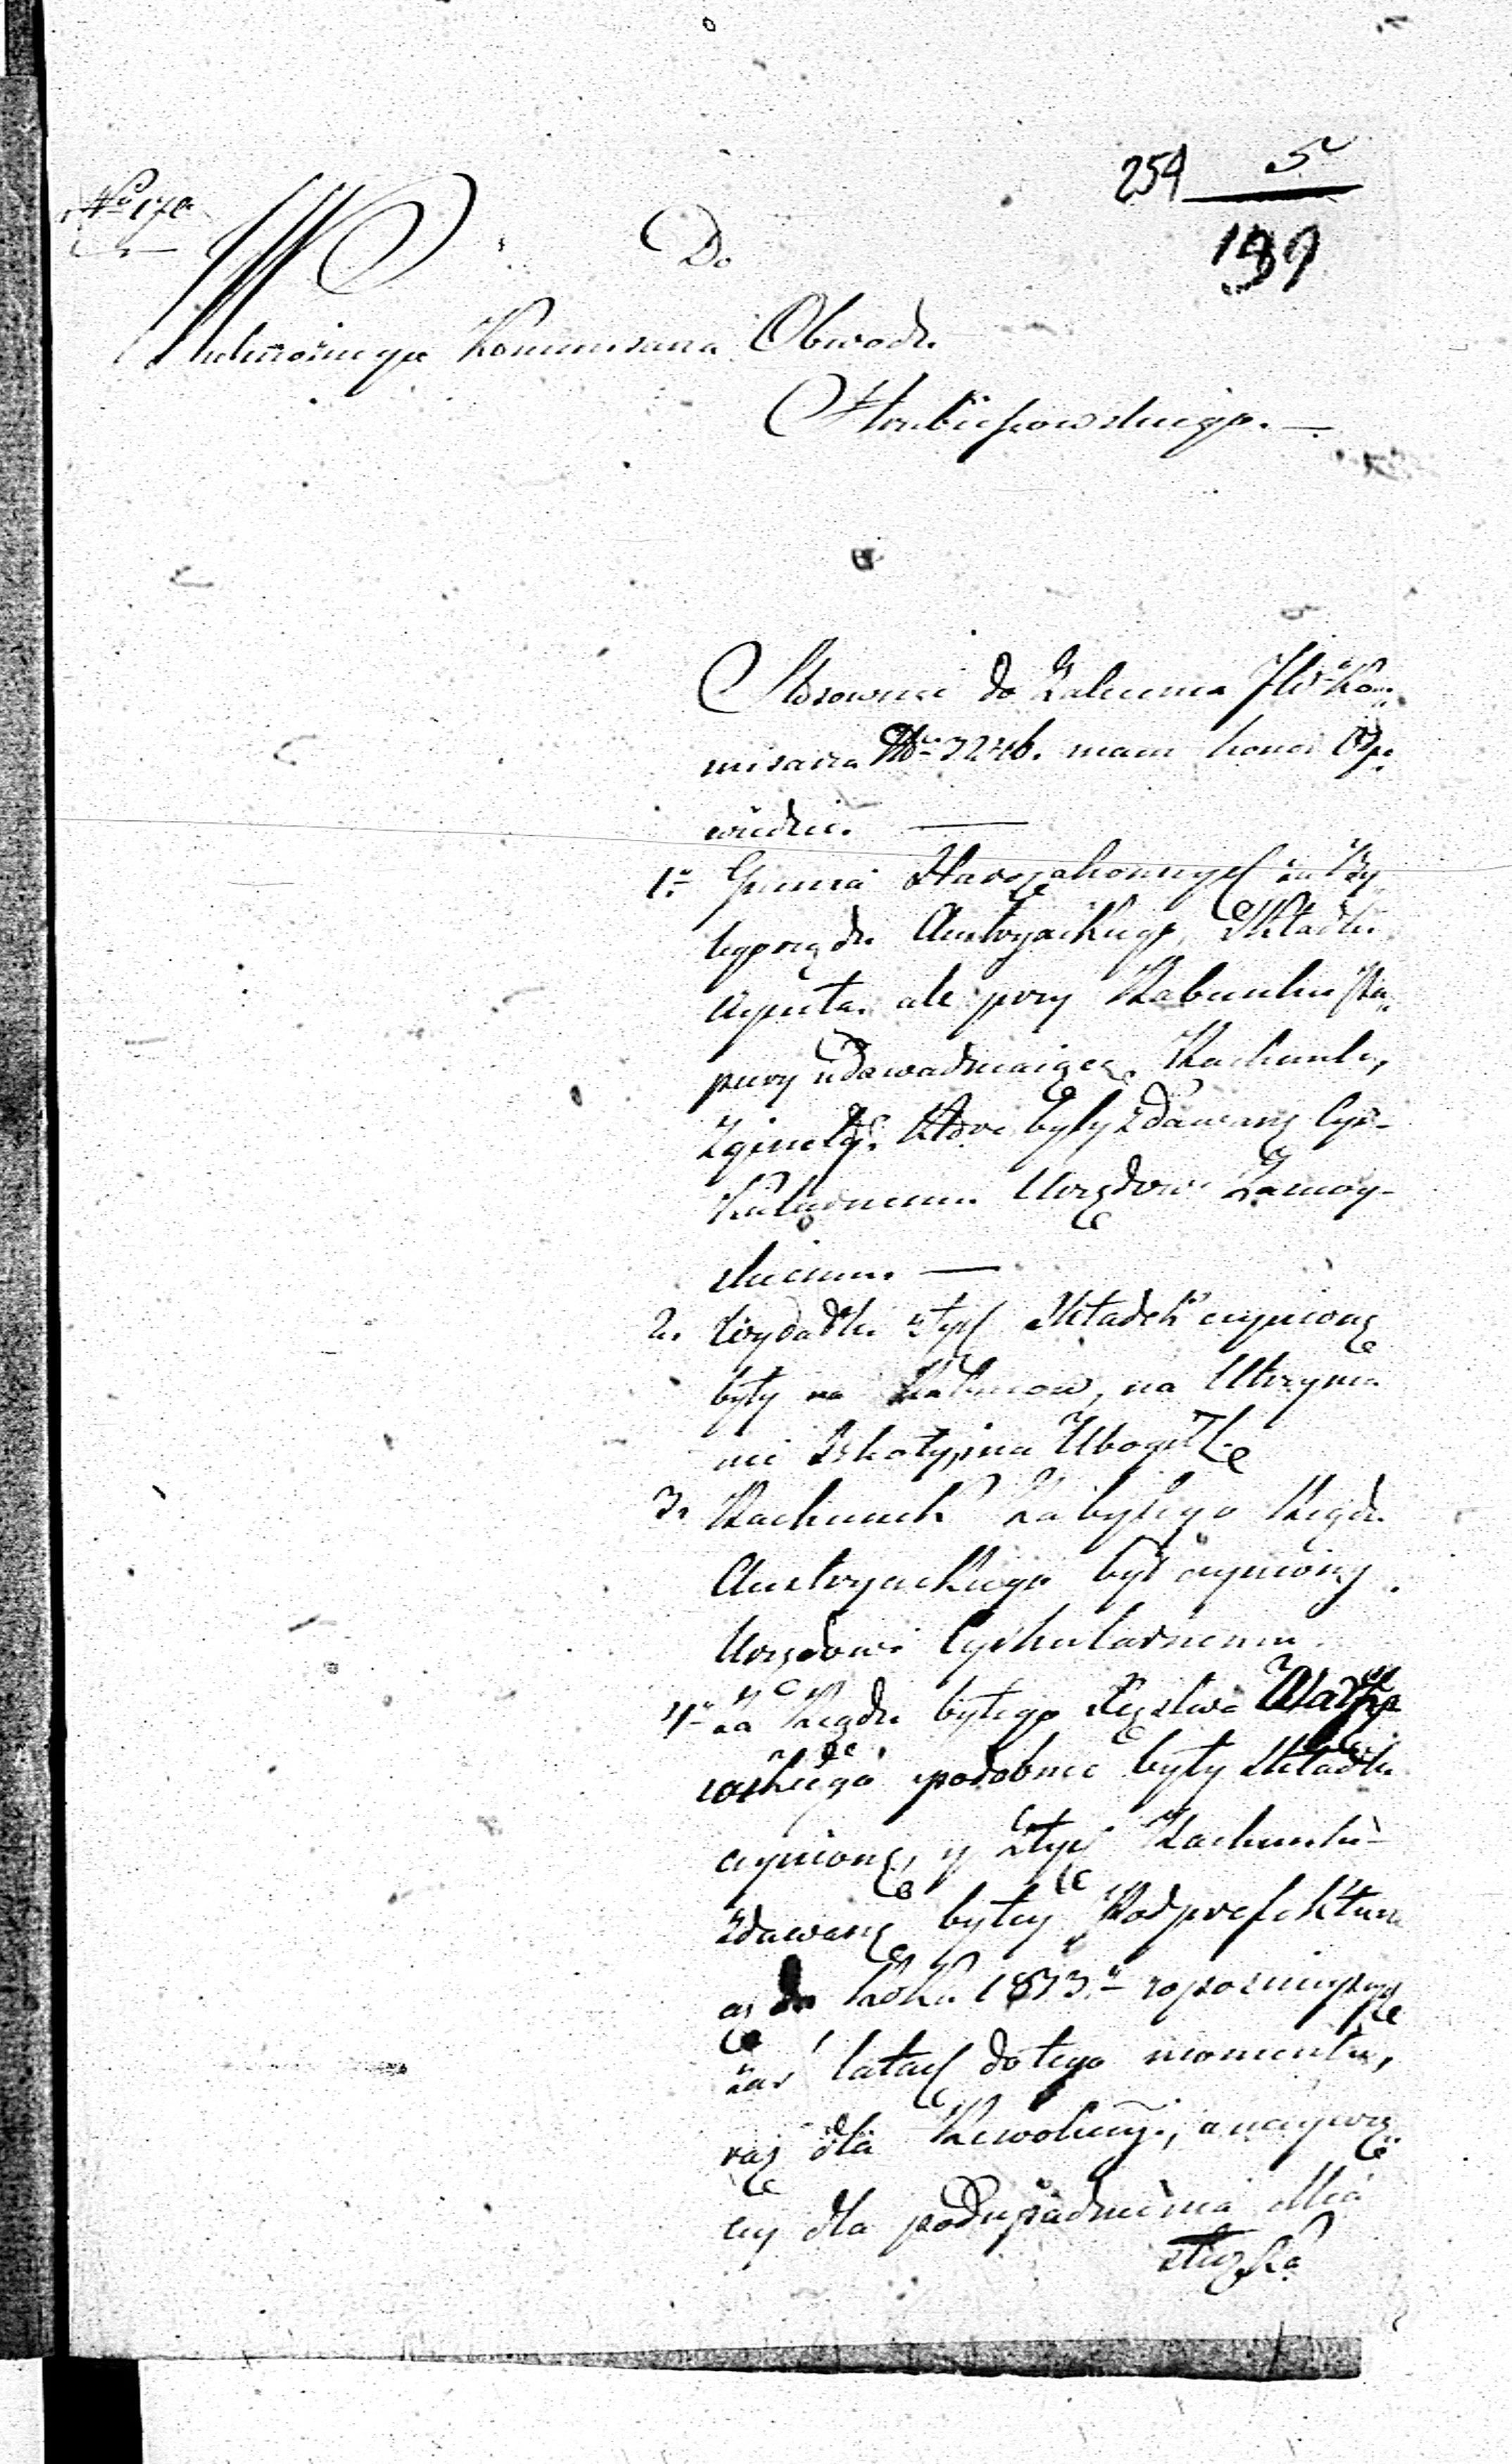 254 5
199
No 170
W
Do
Wielmożnego Kommisarza Obwodu
Hrubieszowskiego. —
Stosownie do Zalecenia JW Kom„
misarza No 3246. mam honor Odpo„
wiedzić. —
1o Gmina Starozakonnych za By„
łego rządu Austryackiego, Składki
czyniła. ale przy Rabunku
udawadniaiące, Rachunki,
Zgineły. Które były zdawane Cyr-
kularnemu Urzędowi Zamoy-
skiemu. —
2. Wydatki z tych Składek czynione
były na Rabinow, na Utrzyma
nie Szkoły, i na Ubogich
3. Rachunek Za byłego Rządu
Austryackiego był czyniony
Urzędowi Cyrkularnemu.
4o Za Rządu byłego Xięstwa Warsza
wskiego podobnie były Składki
czynione, y z tych Rachunki
zdawane byłey Podprefekturze
aż do Roku 1813o w poznieyszych
zaś latach do tego momentu,
raz dla Rewolucyi, a naywię„
cey dla podupadnienia Mia
steczka